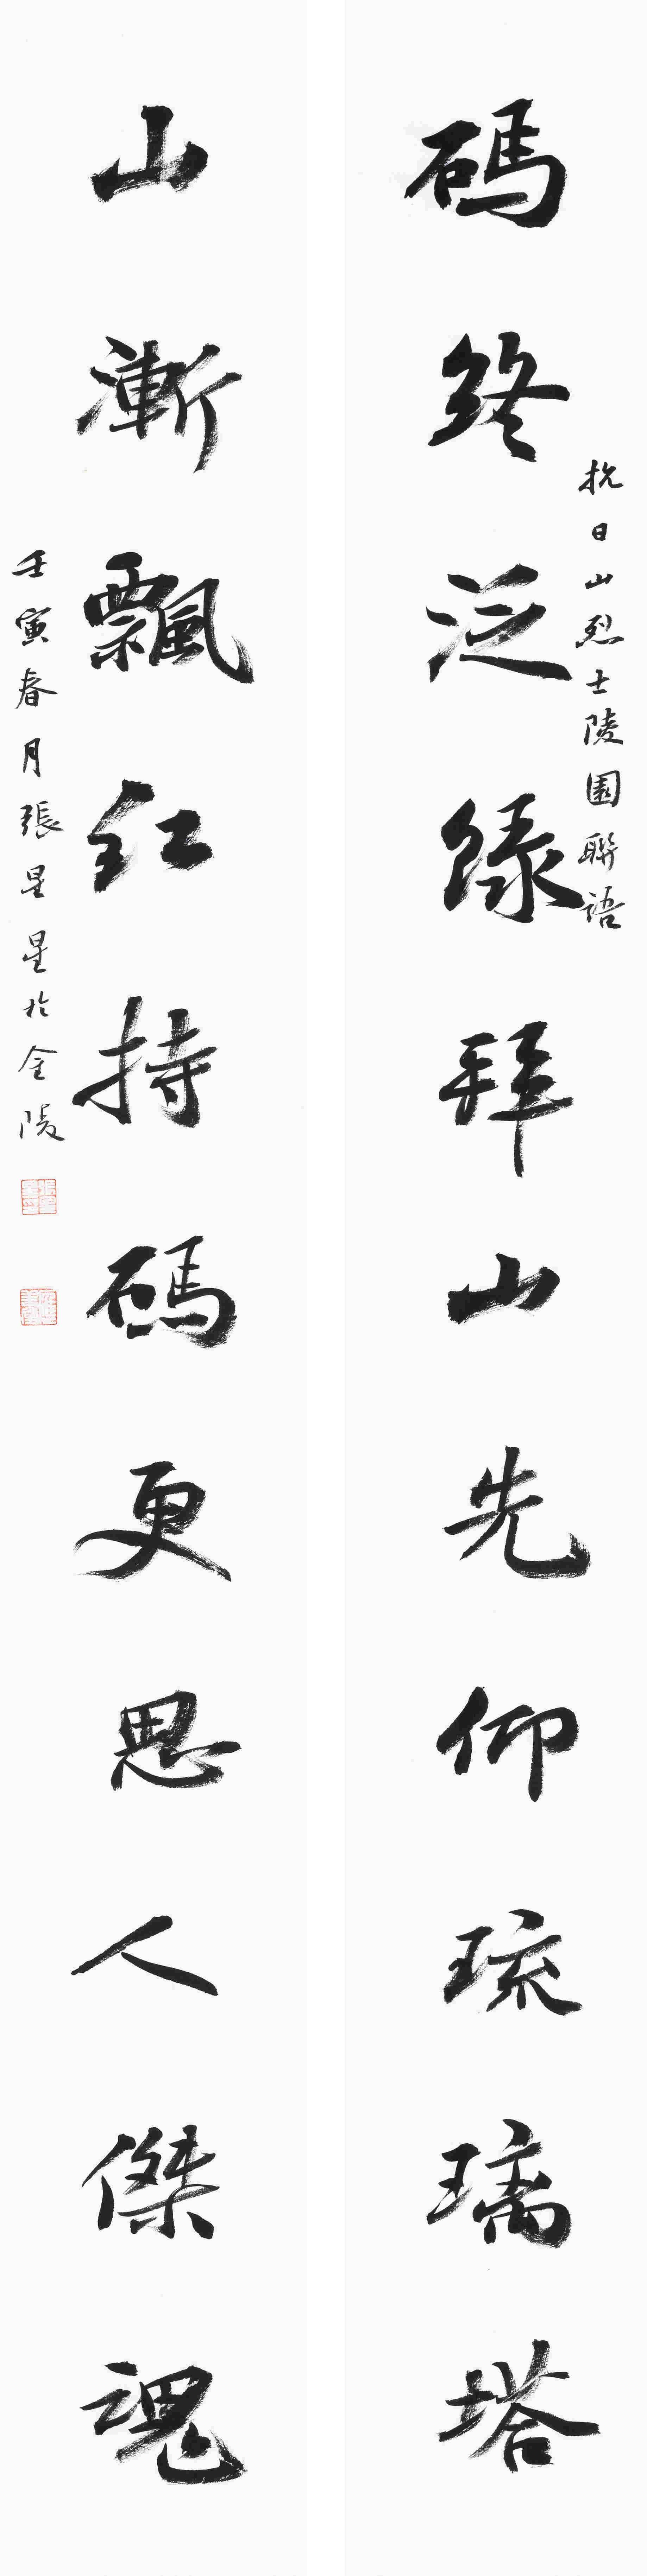 抗日山烈士陵園聯語
碼終泛綠拜山先仰琉璃塔
山漸飄红持碼更思人傑魂
壬寅春月張星星於金陵